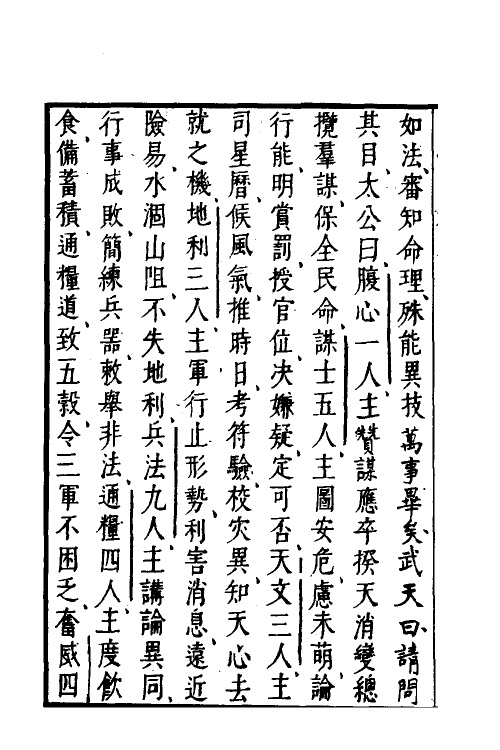 如法審知命理殊能異技萬事畢矣武天曰請問
其目太公曰腹心一人主贊謀應卒揆天消變總
攬羣謀保全民命謀士五人主圖安危慮未萌論
行能明賞罰授官位決嫌疑定可否天文三人主
司星曆候風氣推時日考符驗校灾異知天心去
就之機地利三人主軍行止形勢利害消息遠近
險易水涸山阻不失地利兵法九人主講論異同
行事成敗簡練兵器敕舉非法通糧四人主度飲
食備蓄積通糧道致五穀令三軍不困乏奮威四